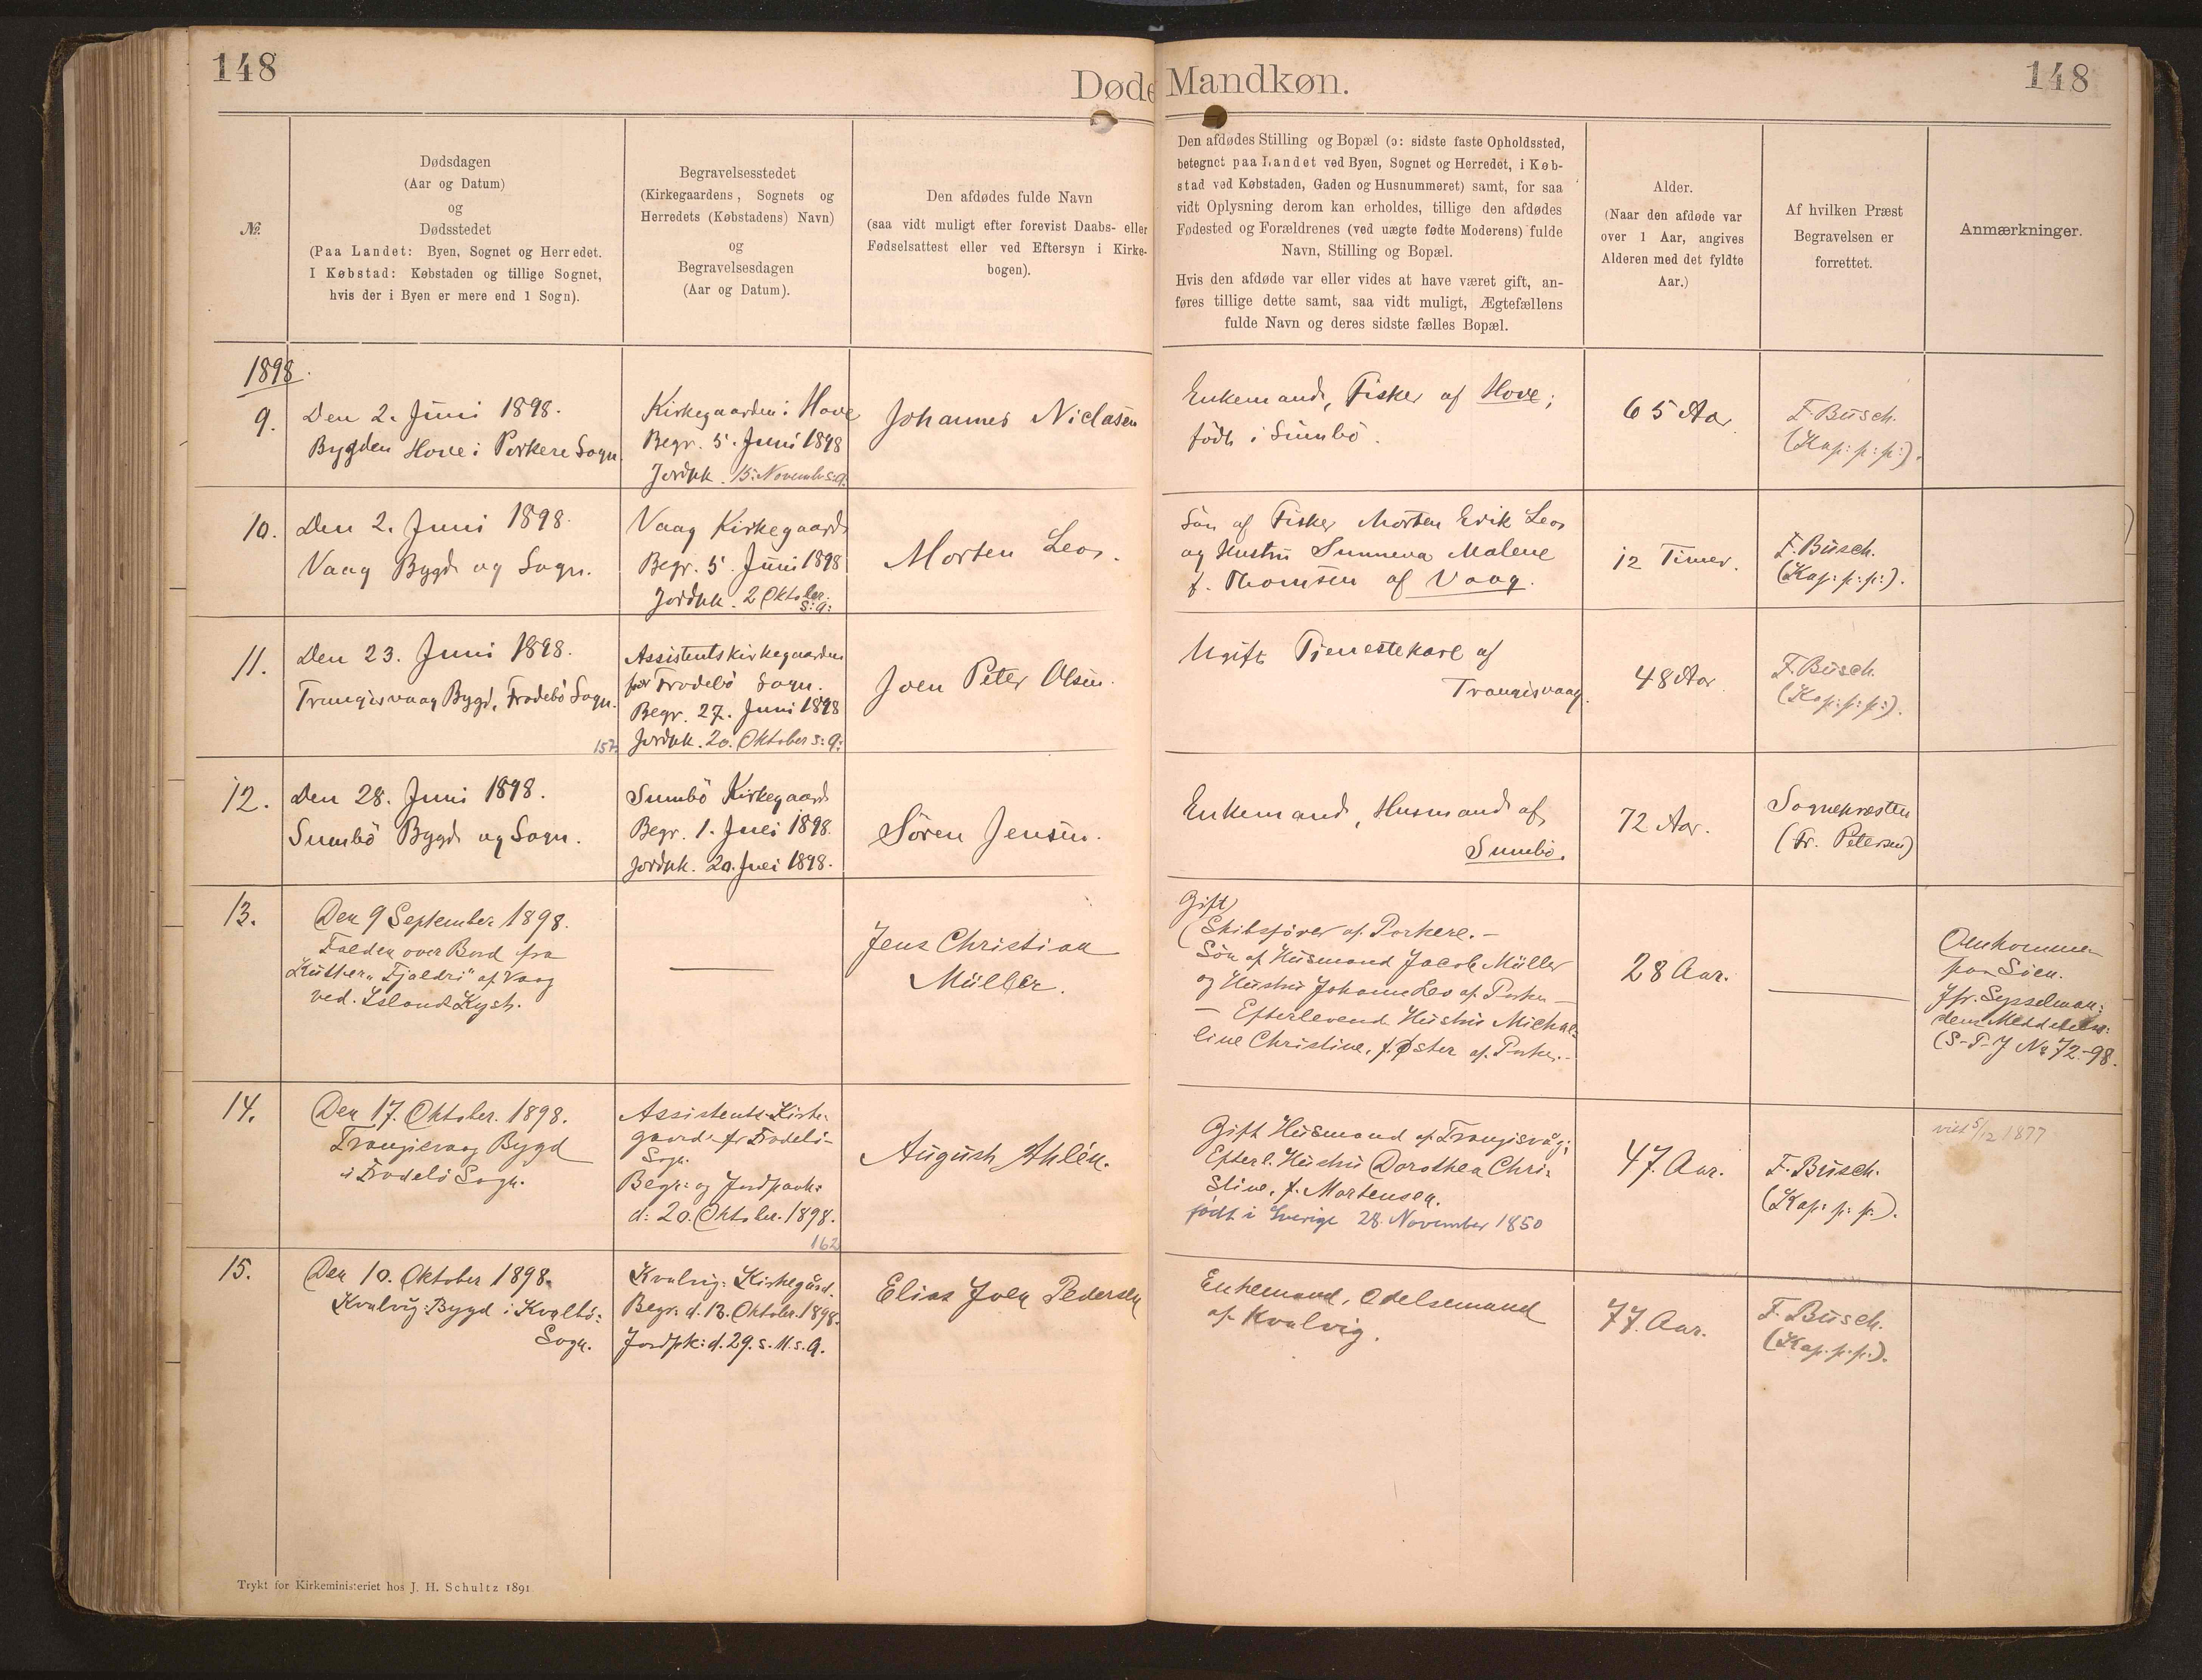 148
Døde Mandkøn.
148
№.
Dødsdagen
(Aar og Datum)
og
Dødsstedet
(Paa Landet: Byen, Sognet og Herredet.
I Købstad: Købstaden og tillige Sognet,
hvis der i Byen er mere end 1 Sogn).
Begravelsesstedet
(Kirkegaardens, Sognets og
Herredets (Købstadens) Navn)
og
Begravelsesdagen
(Aar og Datum).
Den afdødes fulde Navn
(saa vidt muligt efter forevist Daabs- eller
Fødselsattest eller ved Eftersyn i Kirke-
bogen).
Den afdødes Stilling og Bopæl (ɔ: sidste faste Opholdssted,
betegnet paa Landet ved Byen, Sognet og Herredet, i Køb-
stad ved Købstaden, Gaden og Husnummeret) samt, for saa
vidt Oplysning derom kan erholdes, tillige den afdødes
Fødested og Forældrenes (ved uægte fødte Moderens) fulde
Navn, Stilling og Bopæl.
Hvis den afdøde var eller vides at have været gift, an-
føres tillige dette samt, saa vidt muligt, Ægtefællens
fulde Navn og deres sidste fælles Bopæl.
Alder.
(Naar den afdøde var
over 1 Aar, angives
Alderen med det fyldte
Aar.)
Af hvilken Præst
Begravelsen er
forrettet.
Anmærkninger.
1898.
9.
Den 2. Juni 1898.
Bygden Hove i Porkere Sogn
Kirkegaarden i Hove
Begr. 5. Juni 1898
Jordpk. 15. Novembr s: a:
Johannes Niclasen
Enkemand, Fisker af Hove;
født i Sumbö.
65 Aar
F. Busch.
(Kap: p: p:).
10.
Den 2. Juni 1898.
Vaag Bygd og Sogn.
Vaag Kirkegaard
Begr. 5. Juni 1898
Jordpk. 2 Oktober
s: a:
Morten Leos.
Søn af Fisker Morten Erik Leos
og Hustru Sunneva Malene
f. Thomsen af Vaag.
12 Timer.
F. Busch.
(Kap: p: p:).
11.
Den 23. Juni 1898.
Trangisvaag Bygd, Frodebö Sogn.
157
Assistentskirkegaarden
for Frodebö Sogn.
Begr. 27. Juni 1898
Jordpk. 20. Oktober s: a:
Joen Peter Olsen.
Ugift Tjenestekarl af
Trangisvaag.
48 Aar
F. Busch.
(Kap: p: p:).
12.
Den 28. Juni 1898.
Sumbö Bygd og Sogn.
Sumbö Kirkegaard
Begr. 1. Juli 1898.
Jordpk. 20. Juli 1898.
Sören Jensen.
Enkemand, Husmand af
Sumbö.
72 Aar.
Sognepræsten
(Fr. Petersen)
13.
Den 9 September 1898.
Falden over Bord fra
Kutter „Fjaldri" af Vaag
ved Islands Kyst.
Jens Christian
Müller.
Gift
(Skibsfører af Porkere.-
Søn af Husmand Jacob Müller
og Hustru Johanne Leo af Porkere –
– Efterlevende Hustru Michae-
line Christine, f. Øster af Porkere.-
28 Aar.
Omkommen
paa Søen.
Jfr. Sysselman-
dens Meddelelse:
(S-P-J No 72-98.
14.
Den 17. Oktober. 1898.
Trangisvaag Bygd
i Frodebö Sogn.
Assistents-Kirke-
gaard for Frodebö-
Sogn.
Begr: og Jordpaak:
d: 20. Oktober. 1898.
162
August Ahlén.
Gift Husmand af Trangisvåg;
Efterl. Hustru Dorothea Chri-
stine, f. Mortensen.
født i Sverige 28. November 1850
47. Aar.
F. Busch.
(Kap: p: p:).
viet 5/12 1877
15.
Den 10. Oktober 1898.
Kvalvig Bygd i Kvalbö-
Sogn.
Kvalvig: Kirkegård.
Begr: d. 13. Oktober. 1898.
Jordpk: d. 29. s. M. s. A.
Elias Joen Pedersen
Enkemand, Odelsmand
af Kvalvig.
77. Aar.
F. Busch.
(Kap. p. p.).
Trykt for Kirkeministeriet hos J. H. Schultz 1891